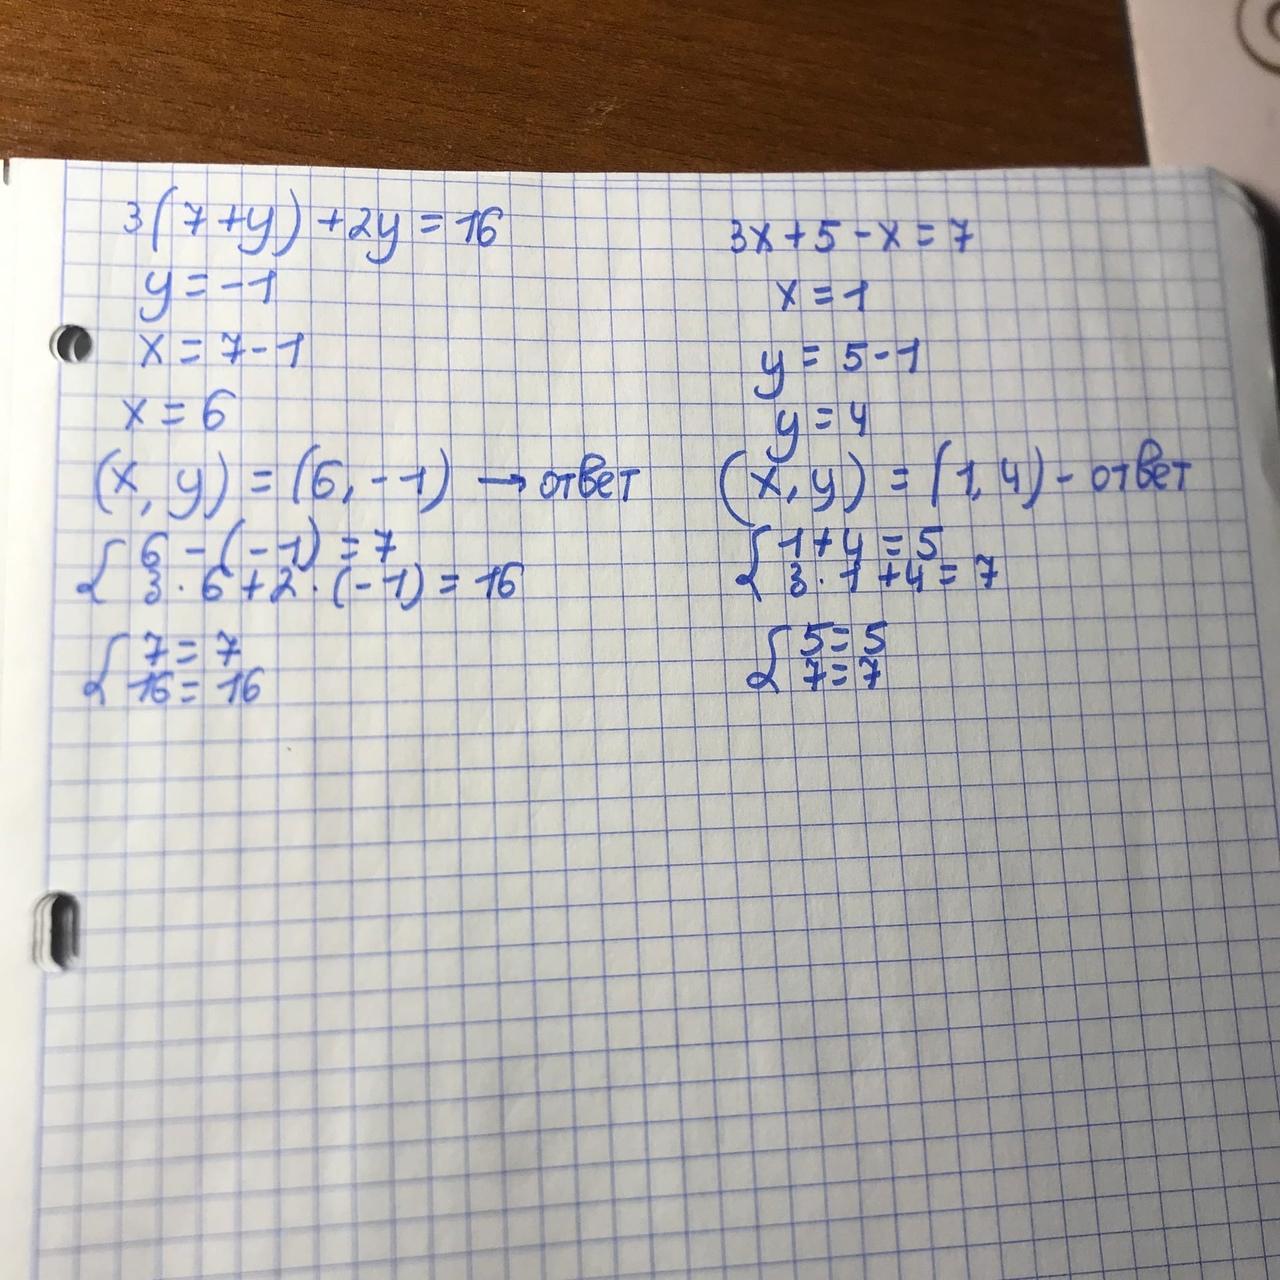 3(7+y)+2y=16
y=-1
x=7-1
x=6
(x,y)=(6,-1)→ответ
{6-(-1)=7
3·6+2·(-1)=16
{7=7
16=16
3x+5-x=7
x=1
y=5-1
y=4
(x,y)=(1,4)-ответ
{1+4=5
3·1+4=7
{5=5
7=7